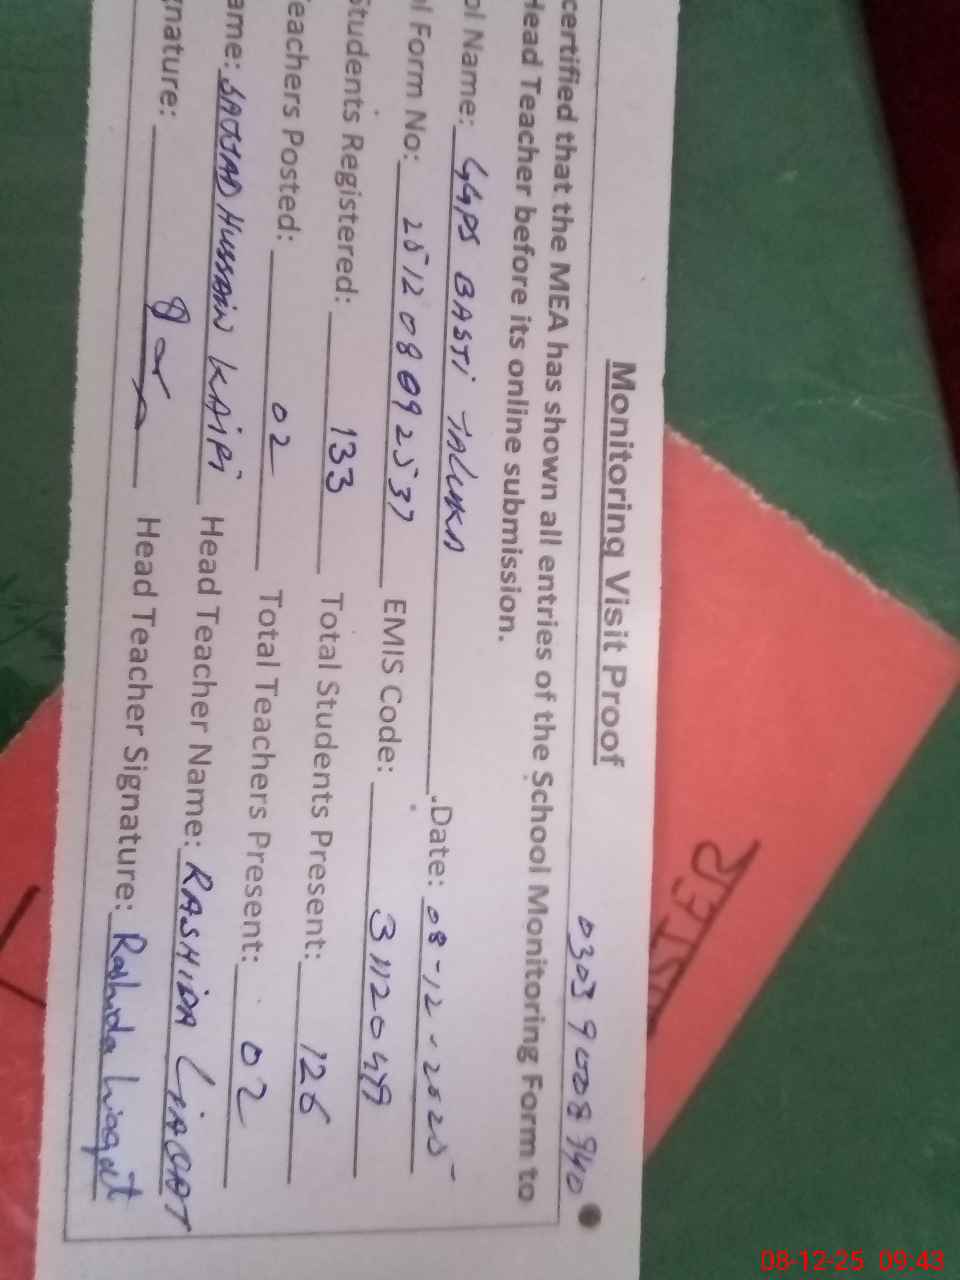 Monitoring Visit Proof
0303 9008940
certified that the MEA has shown all entries of the School Monitoring Form to
Head Teacher before its online submission.
ol Name: GGPS BASTi TALUKA Date: 08-12-2025
ol Form No: 251208092537 EMIS Code: 31120479
Students Registered: 133 Total Students Present: 126
eachers Posted: 02 Total Teachers Present: 02
ame: SAJJAD HUSSAIN KAIPi Head Teacher Name: RASHIDA LIAQAT
gnature: Head Teacher Signature: Rashida Liaqat
STER
08-12-25 09:43